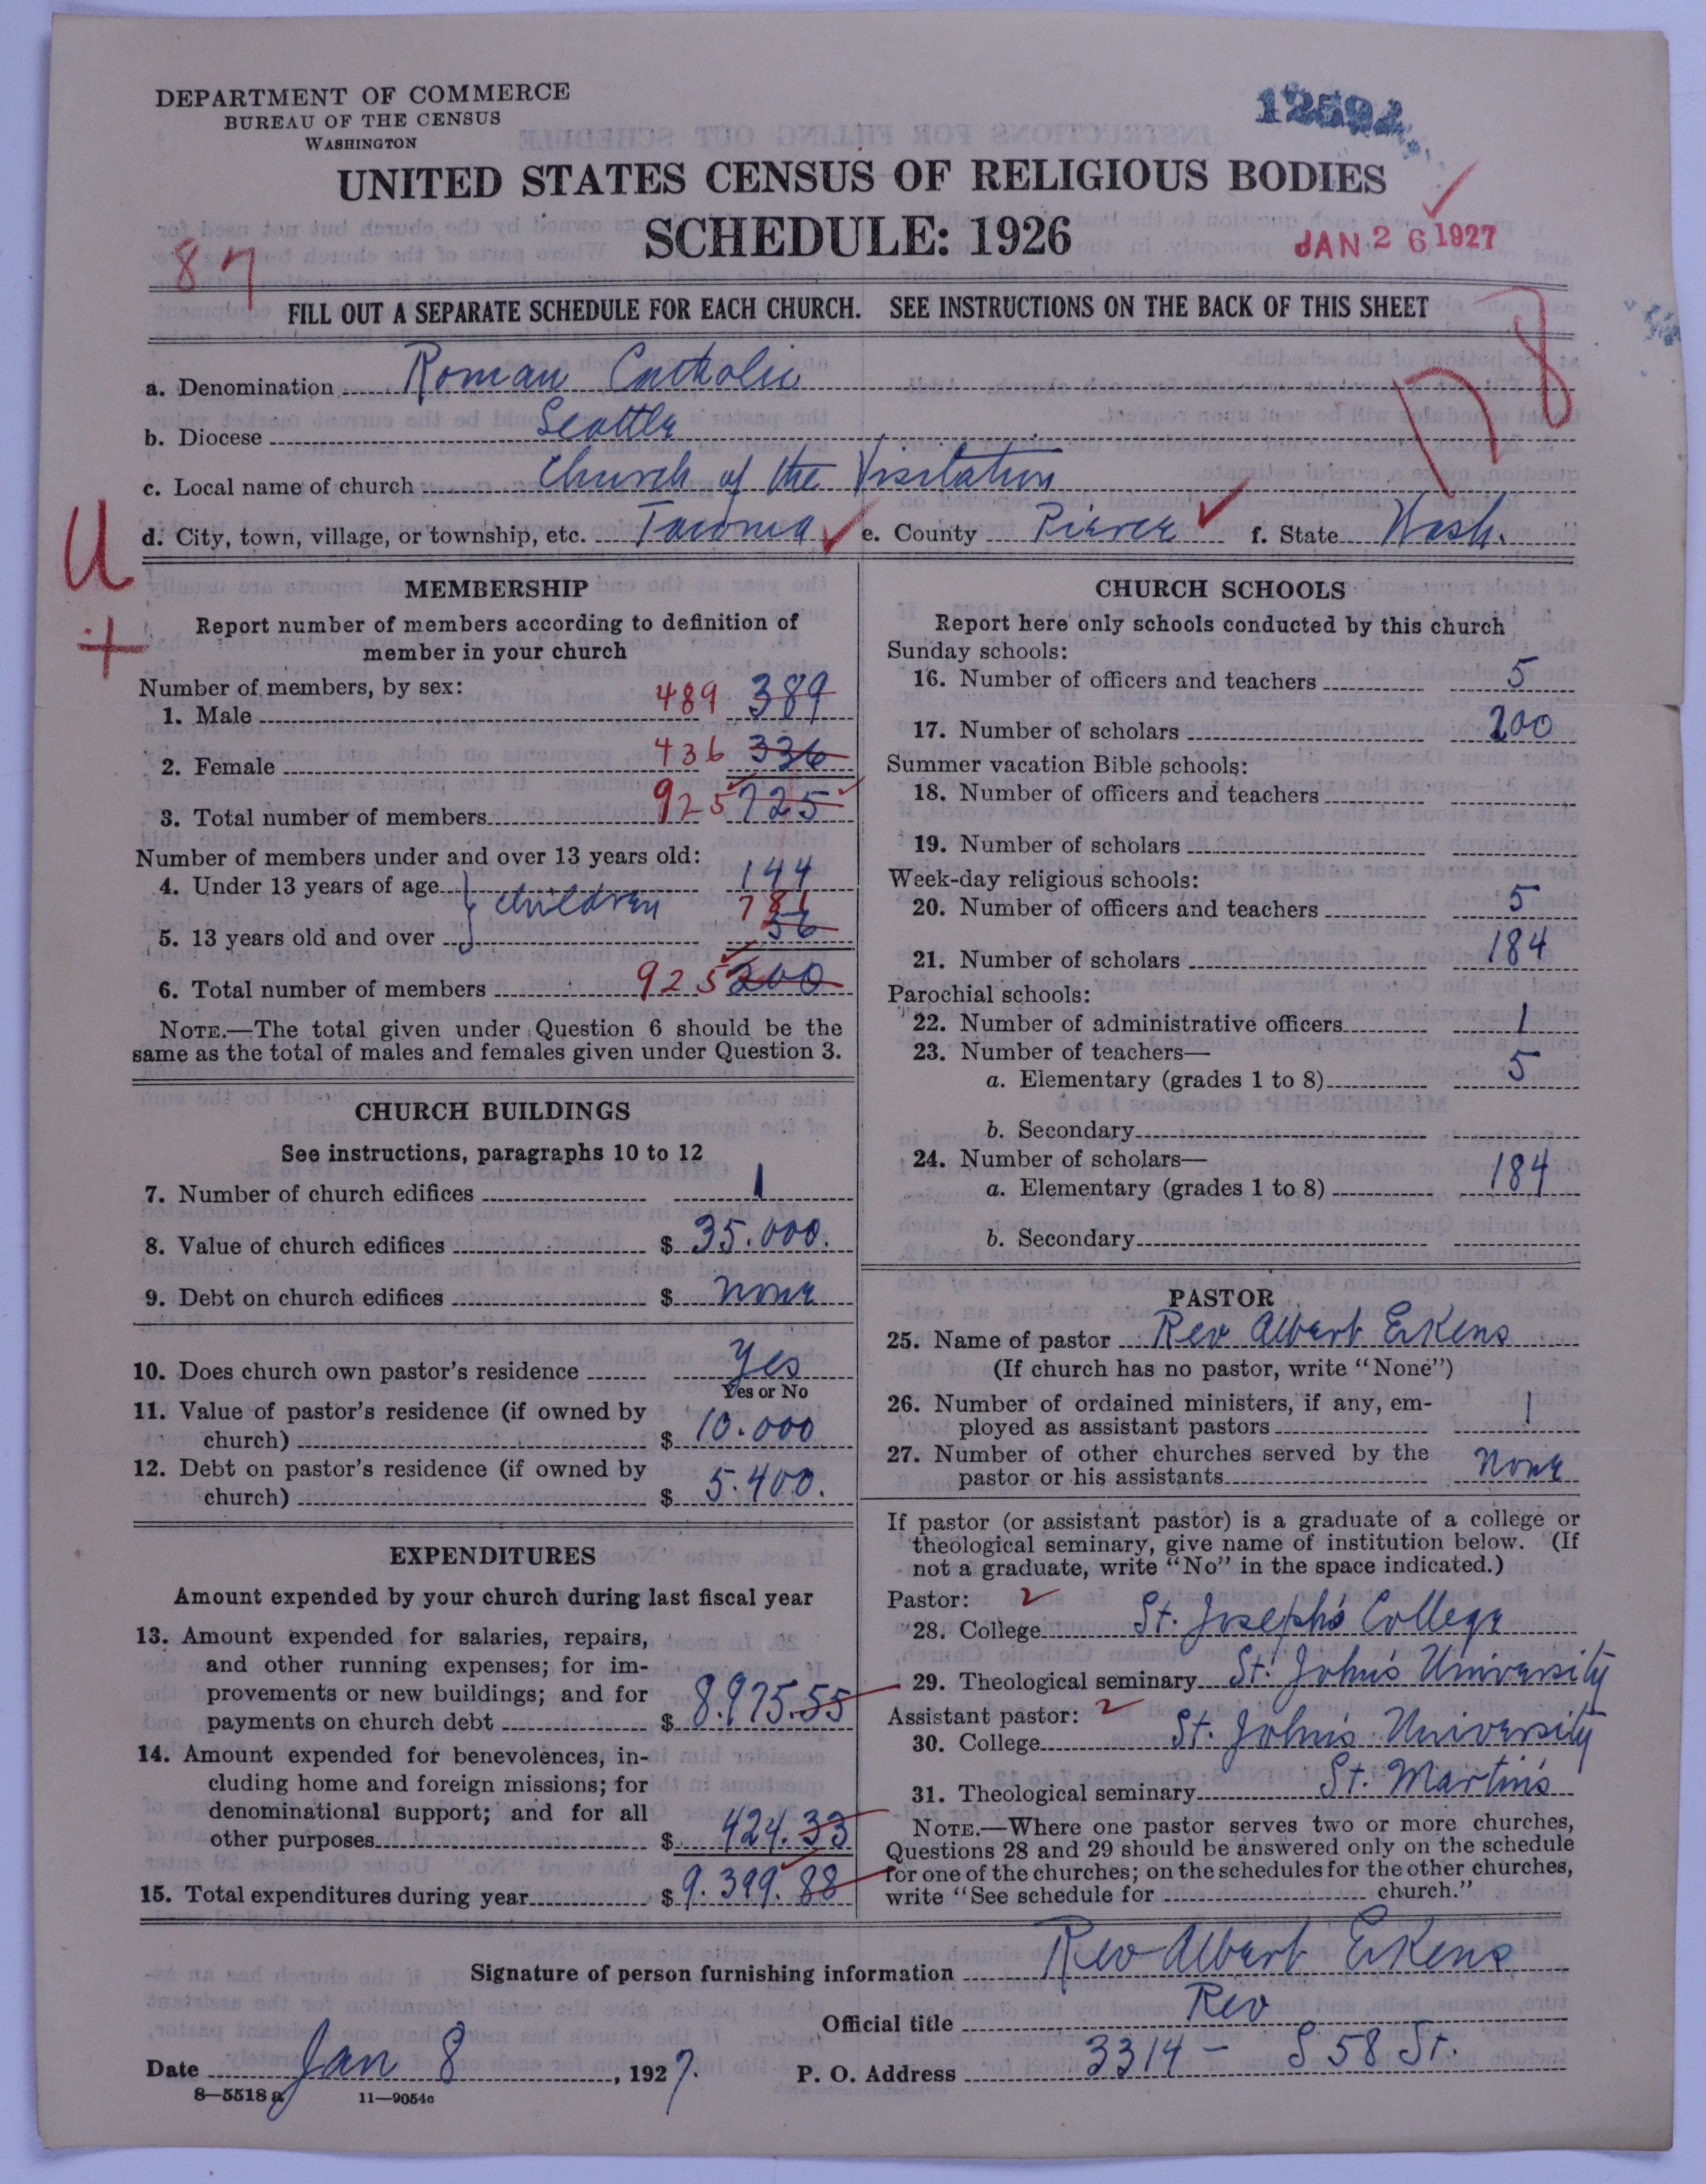 DEPARTMENT OF COMMERCE
BUREAU OF THE CENSUS
WASHINGTON
12592
UNITED STATES CENSUS OF RELIGIOUS BODIES
SCHEDULE: 1926
JAN 26 1927
87
FILL OUT A SEPARATE SCHEDULE FOR EACH CHURCH. SEE INSTRUCTIONS ON THE BACK OF THIS SHEET
178
a. Denomination Roman Catholic
b. Diocese Seattle
c. Local name of church Church of the Visitation
d. City, town, village, or township, etc. Tacoma e. County Pierce f. State Wash.
U
+
MEMBERSHIP
Report number of members according to definition of
member in your church
Number of members, by sex:
1. Male 489 389
2. Female 436 336
3. Total number of members 925 725
Number of members under and over 13 years old:
4. Under 13 years of age } children 144
781
5. 13 years old and over 56
6. Total number of members 925 200
NOTE.—The total given under Question 6 should be the
same as the total of males and females given under Question 3.
CHURCH BUILDINGS
See instructions, paragraphs 10 to 12
7. Number of church edifices 1
8. Value of church edifices $ 35.000.
9. Debt on church edifices $ none
10. Does church own pastor's residence Yes
Yes or No
11. Value of pastor's residence (if owned by
church) $ 10.000
12. Debt on pastor's residence (if owned by
church) $ 5.400.
EXPENDITURES
Amount expended by your church during last fiscal year
13. Amount expended for salaries, repairs,
and other running expenses; for im-
provements or new buildings; and for
payments on church debt $ 8.975.55
14. Amount expended for benevolences, in-
cluding home and foreign missions; for
denominational support; and for all
other purposes $ 424.33
15. Total expenditures during year $ 9.399.88
CHURCH SCHOOLS
Report here only schools conducted by this church
Sunday schools:
16. Number of officers and teachers 5
17. Number of scholars 200
Summer vacation Bible schools:
18. Number of officers and teachers
19. Number of scholars
Week-day religious schools:
20. Number of officers and teachers 5
21. Number of scholars 184
Parochial schools:
22. Number of administrative officers 1
23. Number of teachers—
a. Elementary (grades 1 to 8) 5
b. Secondary
24. Number of scholars—
a. Elementary (grades 1 to 8) 184
b. Secondary
PASTOR
25. Name of pastor Rev Albert Erkens
(If church has no pastor, write "None")
26. Number of ordained ministers, if any, em-
ployed as assistant pastors 1
27. Number of other churches served by the
pastor or his assistants none
If pastor (or assistant pastor) is a graduate of a college or
theological seminary, give name of institution below. (If
not a graduate, write "No" in the space indicated.)
Pastor: 2
28. College St. Joseph's College
29. Theological seminary St. John's University
Assistant pastor: 2
30. College St. John's University
31. Theological seminary St. Martin's
NOTE.—Where one pastor serves two or more churches,
Questions 28 and 29 should be answered only on the schedule
for one of the churches; on the schedules for the other churches,
write "See schedule for church."
Signature of person furnishing information Rev Albert Erkens
Official title Rev
Date Jan 8, 1927. P. O. Address 3314 - S 58 St.
8—5518 a 11—9054c